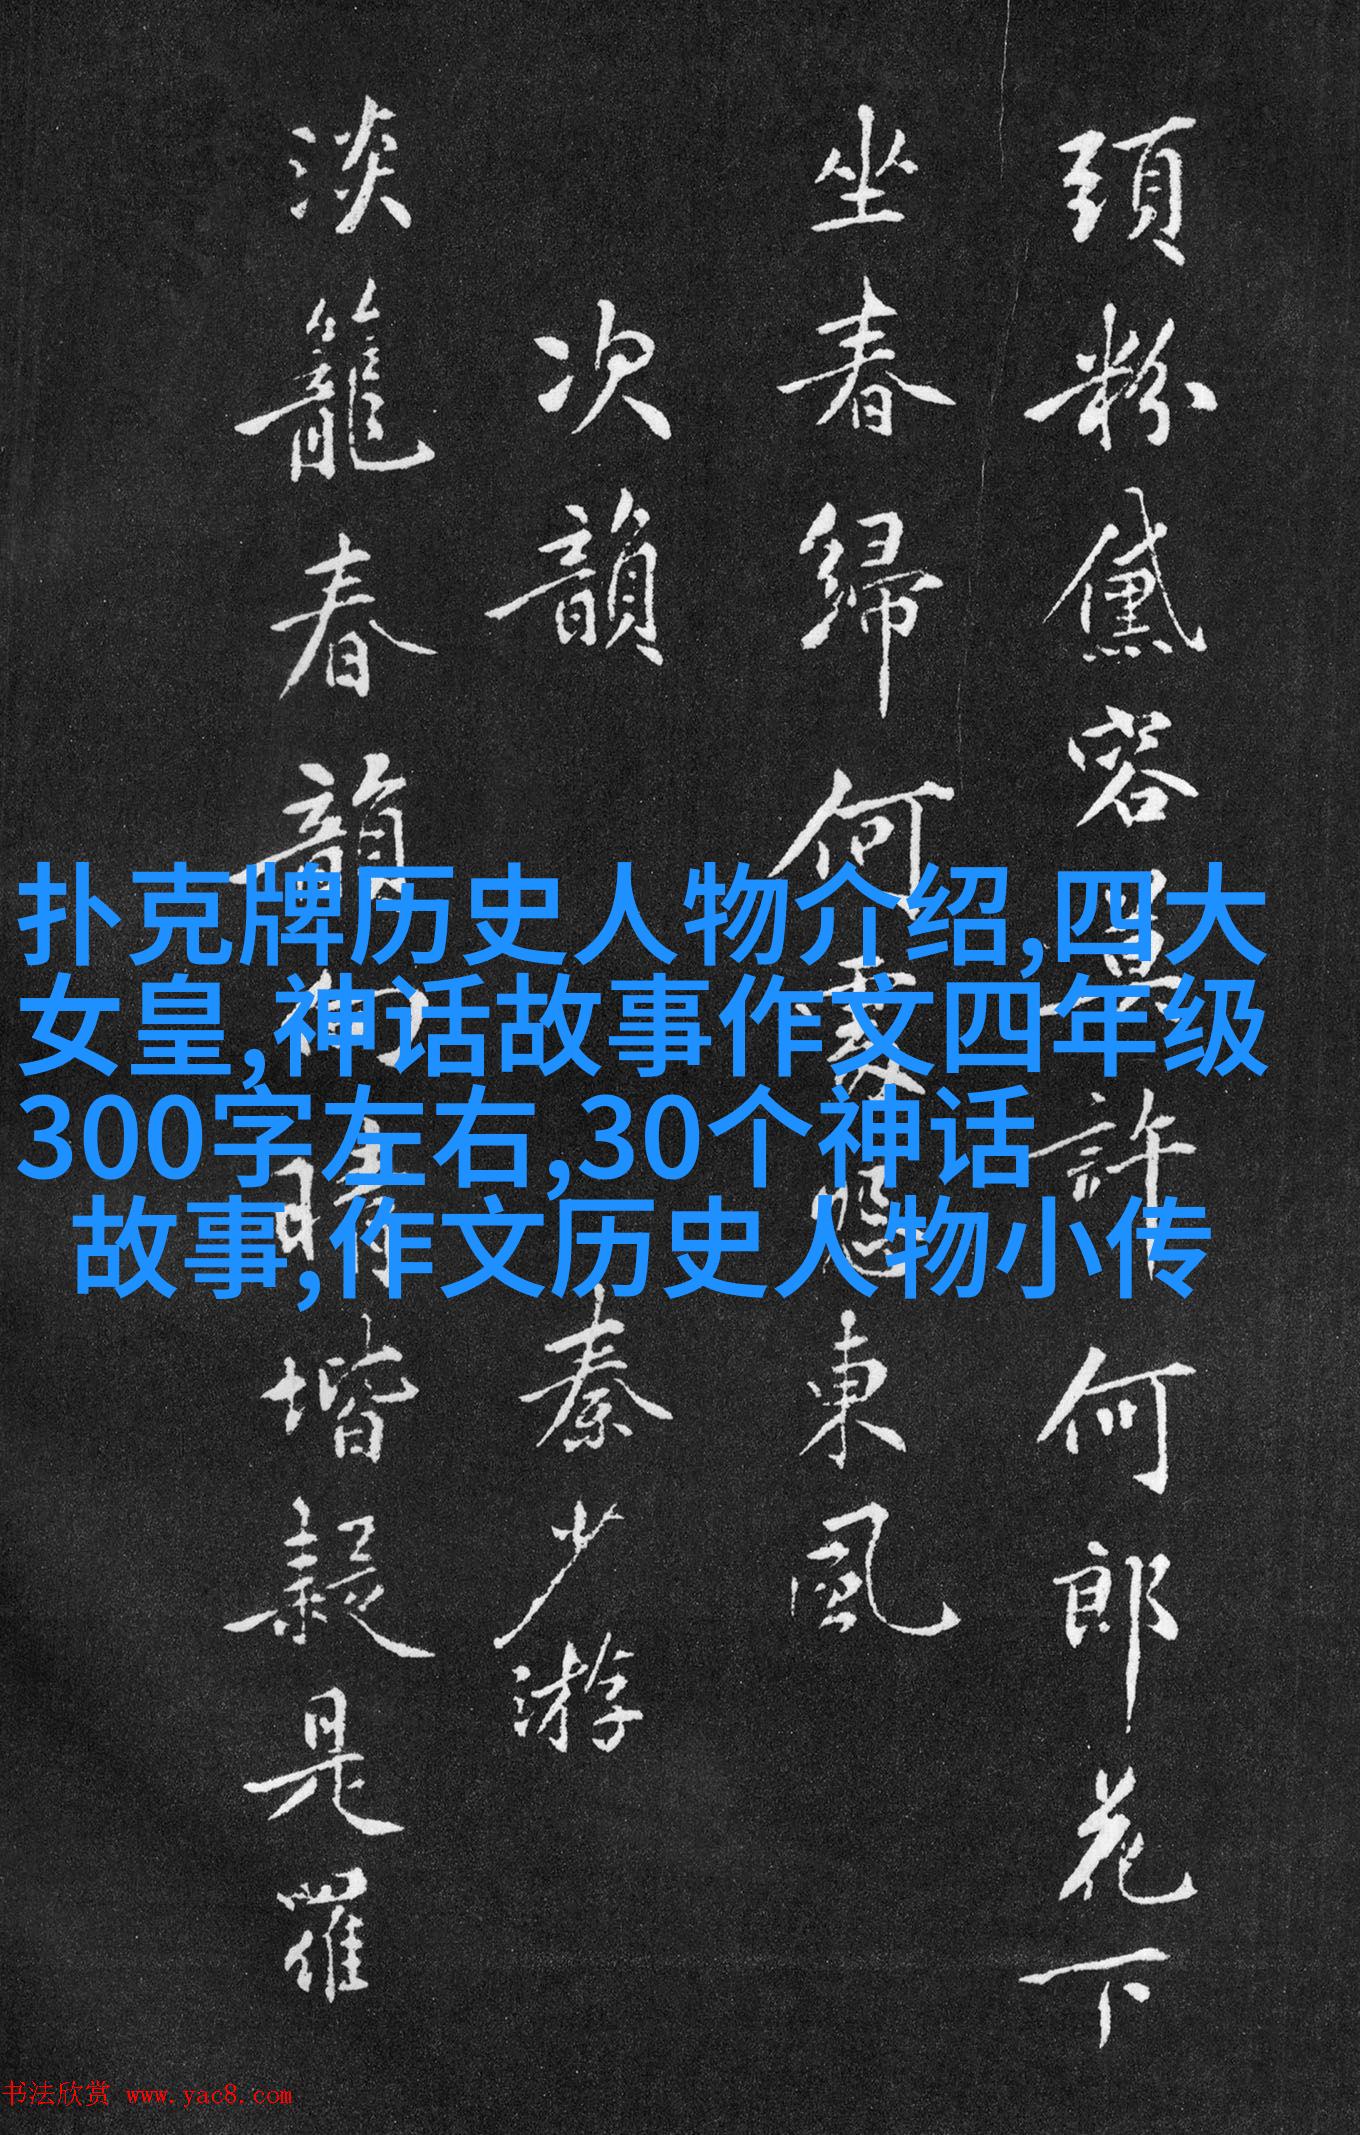 頭粉黛容許何郎花下
坐春歸何處東風
次韻 秦少游
淡籠春韻向晴堦疑是羅
扑克牌历史人物介绍,四大
女皇,神话故事作文四年级
300字左右,30个神话
故事,作文历史人物小传
书法欣赏 www.yac8.com